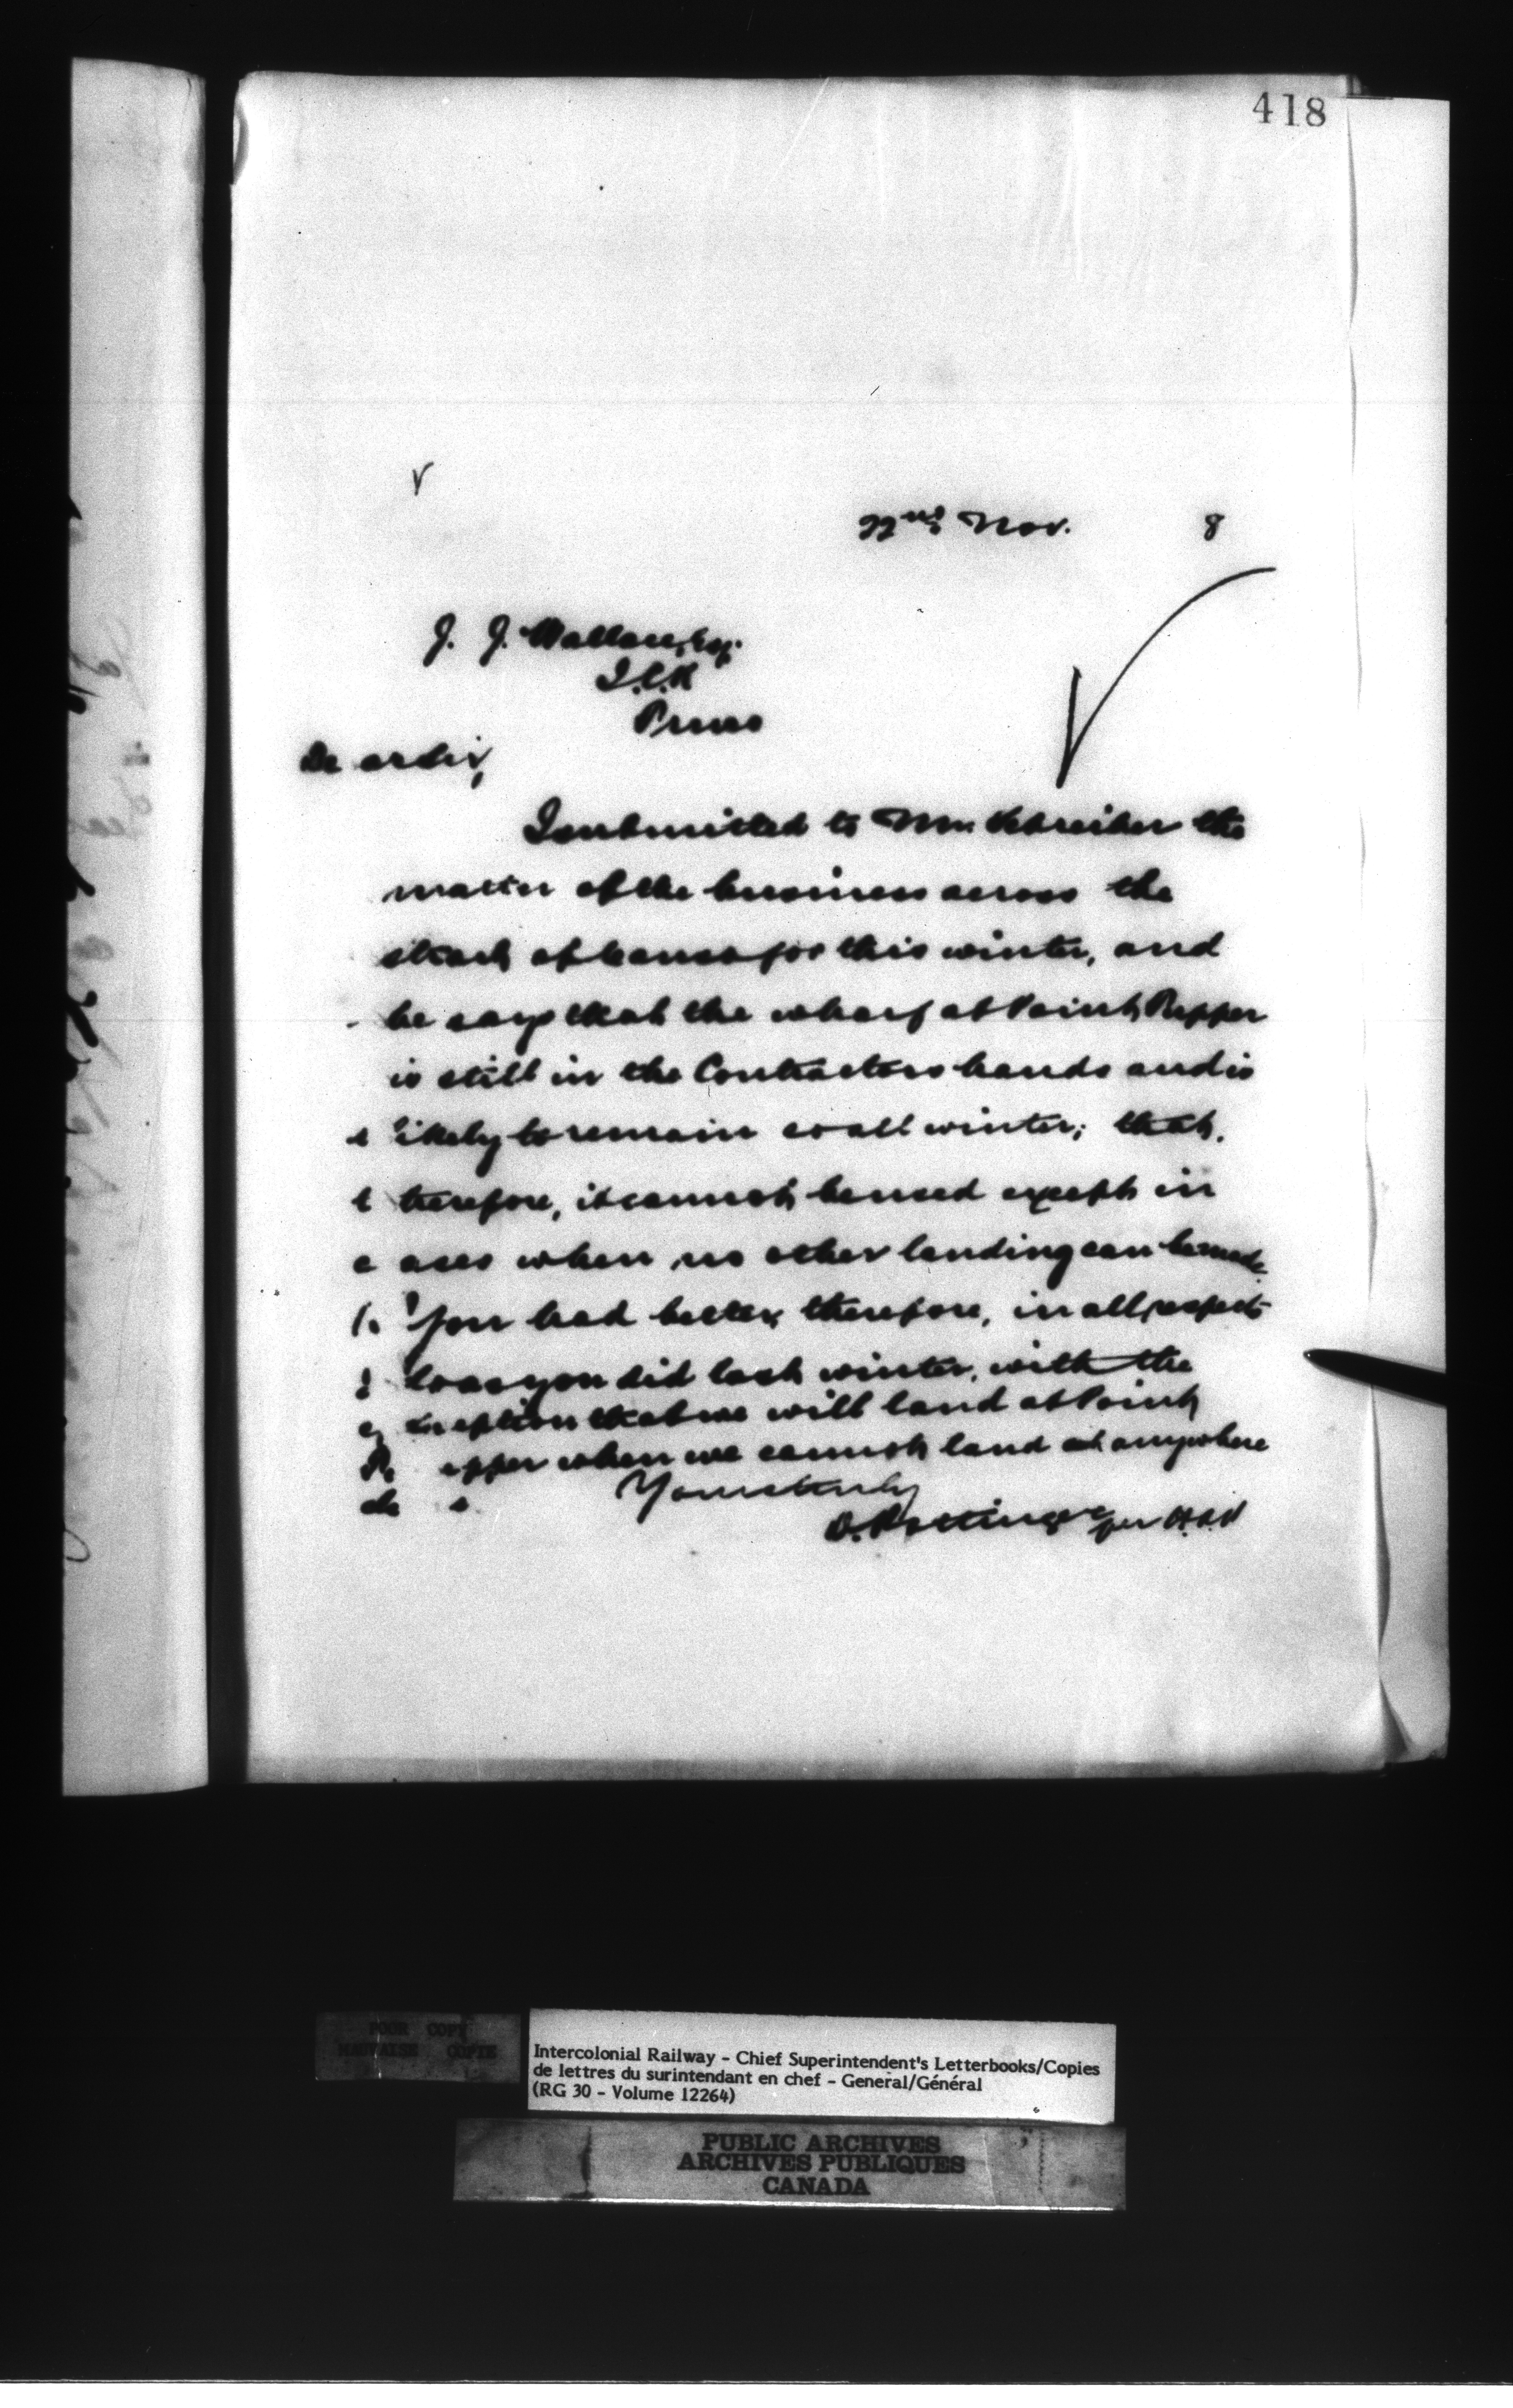 418
22nd Nov. 8
J. J. Wallace, Esq.
I.C.R
Truro
Dear Sir,
I submitted to Mr. Schreiber the
matter of the business across the
strait of Canso for this winter, and
he says that the wharf at Point Tupper
is still in the Contractors hands and is
likely to remain so all winter; that,
therefore, it cannot be used except in
cases when no other landing can be made.
You had better, therefore, in all respects
do as you did last winter, with the
exception that we will land at Point
Tupper when we cannot land at anywhere
Yours truly
D. Pottinger per
POOR COPY
MAUVAISE COPIE
Intercolonial Railway - Chief Superintendent's Letterbooks/Copies
de lettres du surintendant en chef - General/Général
(RG 30 - Volume 12264)
PUBLIC ARCHIVES
ARCHIVES PUBLIQUES
CANADA